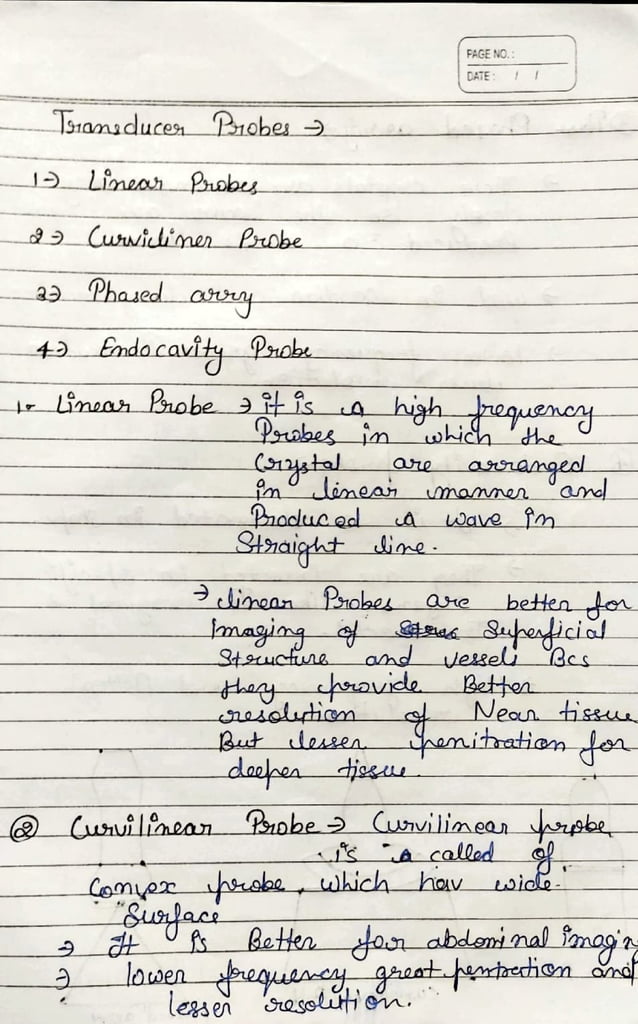 PAGE NO.:
DATE: / /
Transducer Probes →
1→ Linear Probes
2→ Curviliner Probe
3→ Phased arry
4→ Endocavity Probe
1- Linear Probe → it is a high frequency
Probes in which the
Crystal are arranged
in linear manner and
Produced a wave in
Straight line.
→ linear Probes are better for
Imaging of Superficial
Structure and vessels Bcs
they provide Better
resolution of Near tissue
But lesser penitration for
deeper tissue.
② Curvilinear Probe → Curvilinear probe
is a called of
Convex probe, which hav wide
Surface
→ It is Better for abdominal imagin
→ lower frequency great pentration and
lesser resolution.